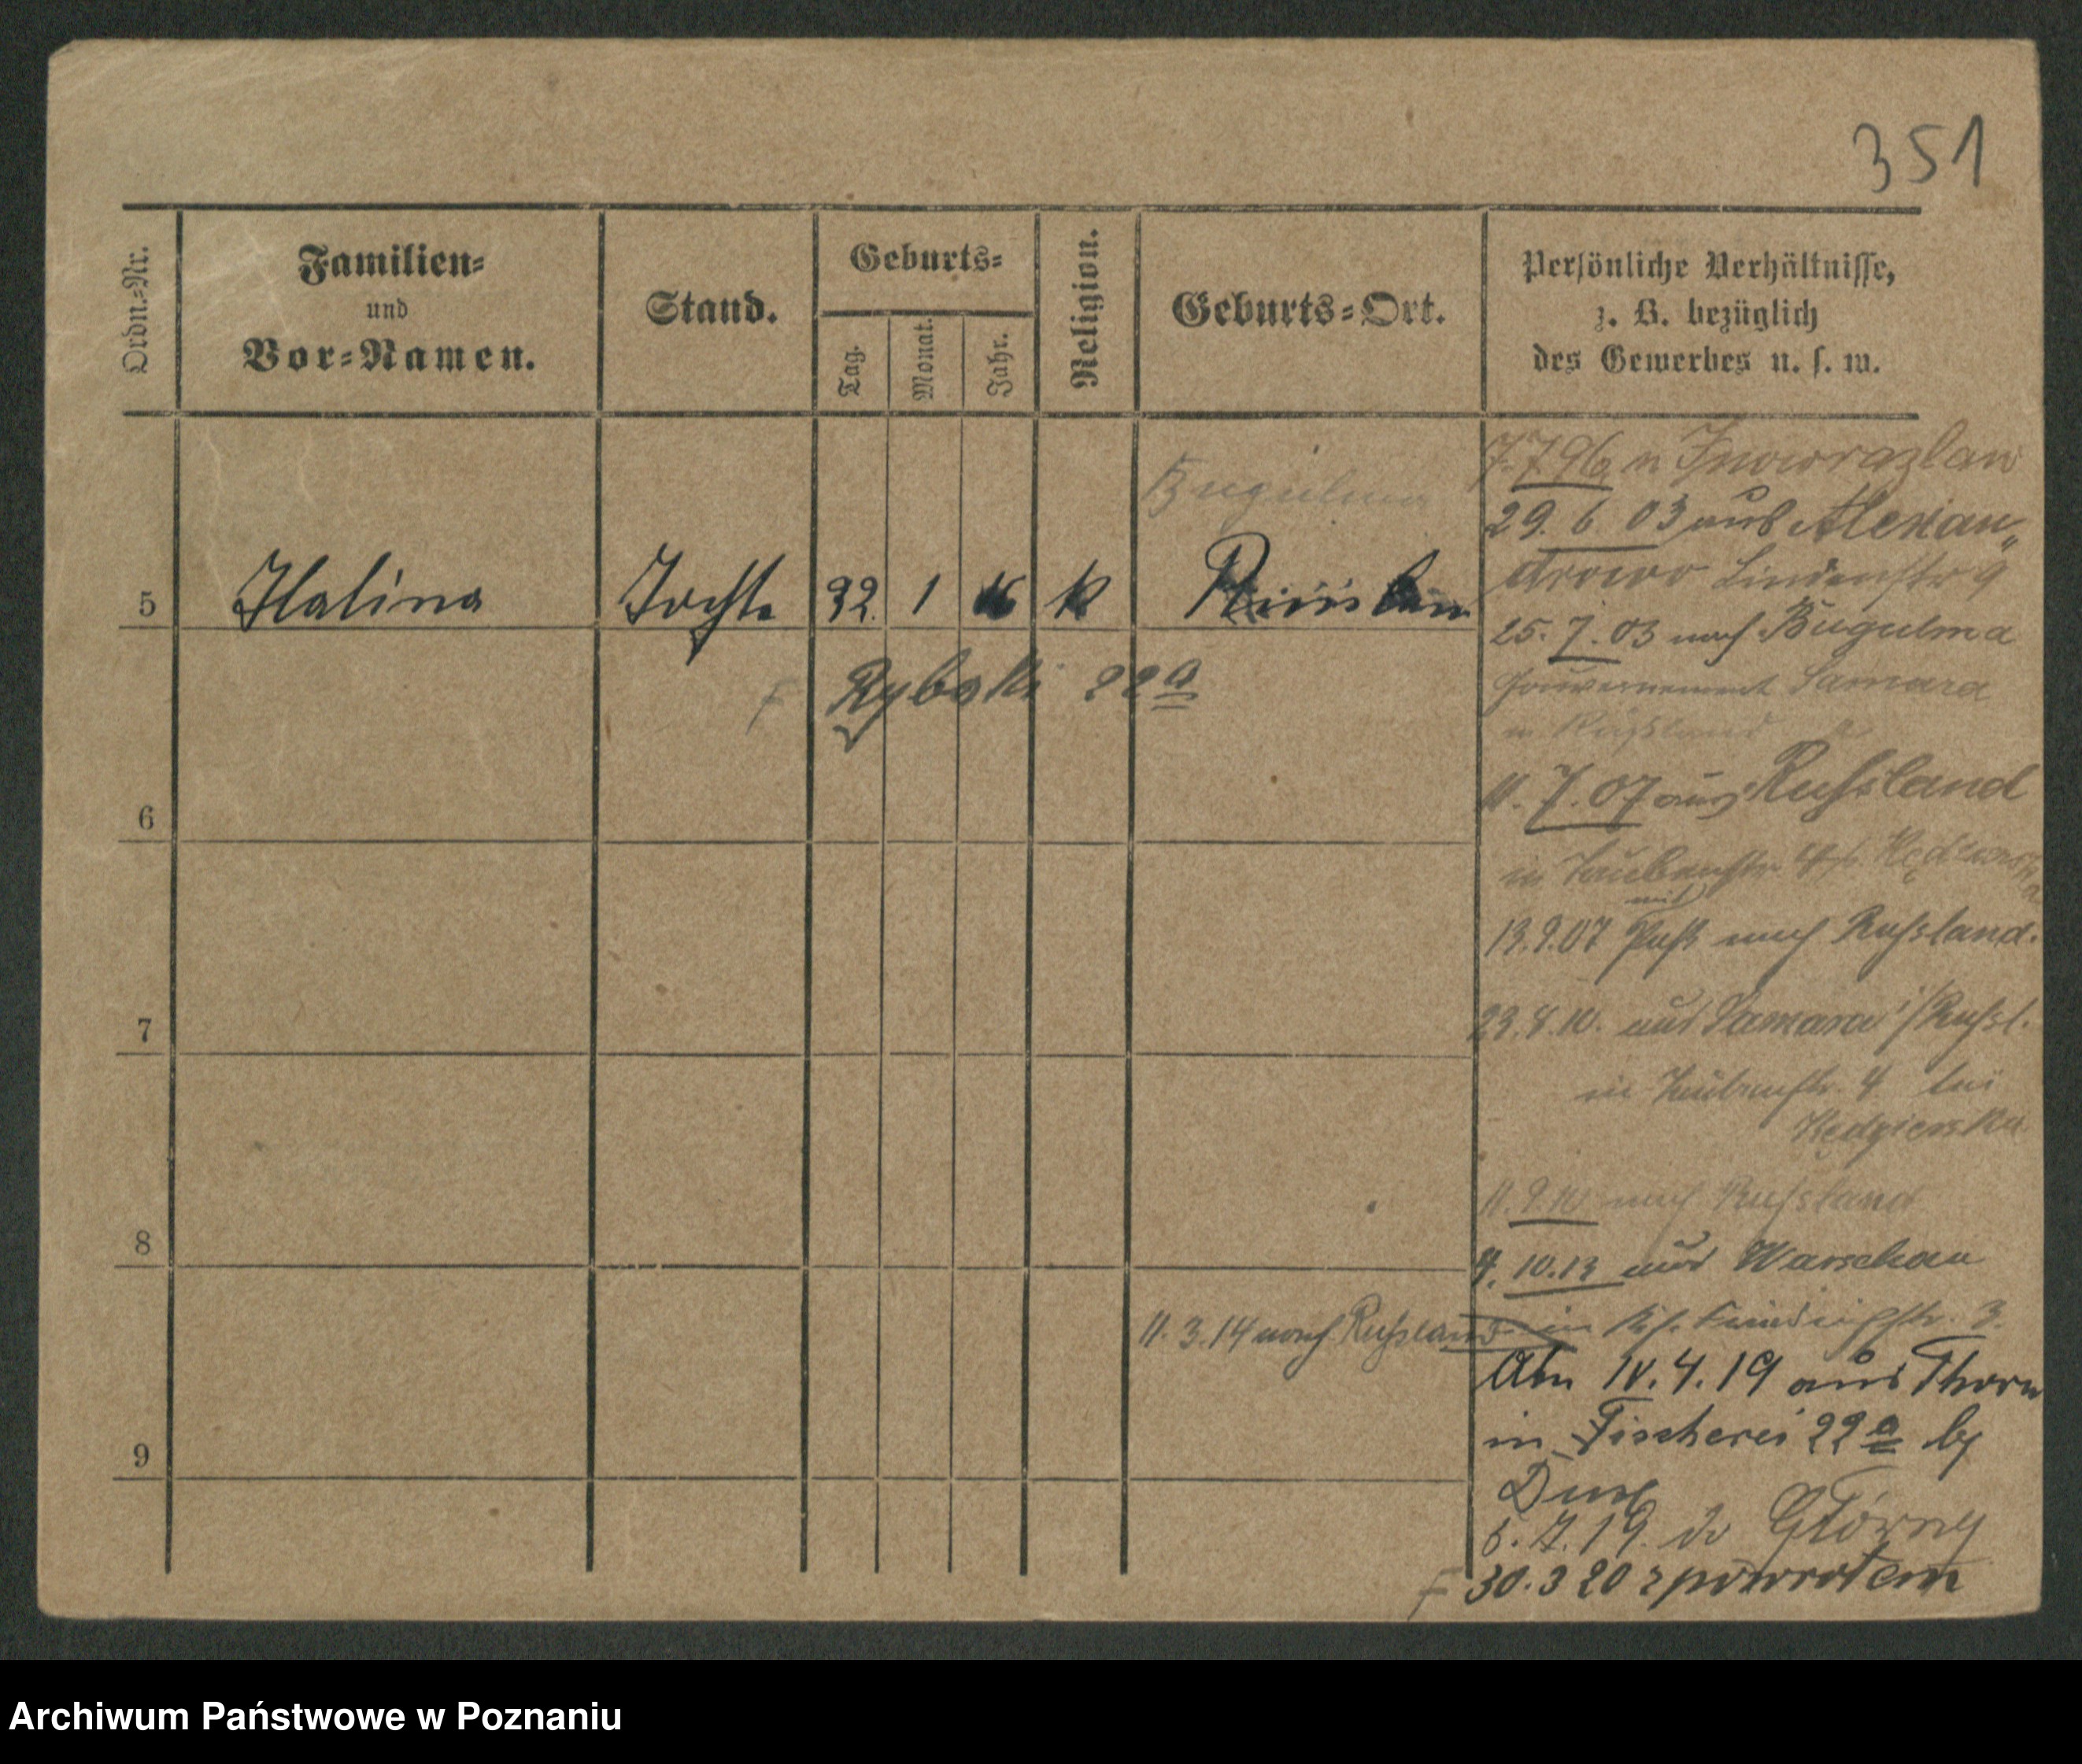 351
Ordn.=Nr.
Familien=
und
Vor=Namen.
Stand.
Geburts=
Tag.
Monat.
Jahr.
Religion.
Geburts=Ort.
Persönliche Verhältnisse,
z. B. bezüglich
des Gewerbes u. s. w.
Bugulma
5 Halina Tochter 1 k
Rybaki 22 a
6
7
8
9
7.7 96 n Inowrazlaw
29. 6 03 aus Alexan„
drowo Lindenstr 9
25. 7. 03 nach Bugulma
Gouvernement Samara
in Russland
11. 7. 07 aus Russland
in Taubenstr 4
mit
13.9.07 Pass nach Russland.
23.8.10. aus Samara i/Russl.
in Taubenstr. 4 bei
Kedzierska
11.9.10 nach Russland
4. 10.13 aus Warschau
in Friedrichstr. 3.
11. 3. 14 nach Russland
Am 4. 19 aus Thorn
in Fischerei 22 a
19. do Główny
30. 3 20 z powrotem
Archiwum Państwowe w Poznaniu